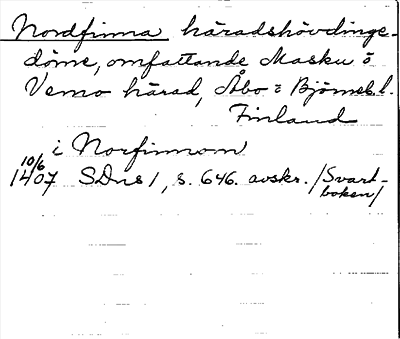 Nordfinna häradshövdinge-
döme, omfattande Masku o
Vemo härad, Åbo o Björneb. l.
Finland
i Norfinnom
10/6
1407 SDns 1, s. 646. avskr. /Svart-
boken/